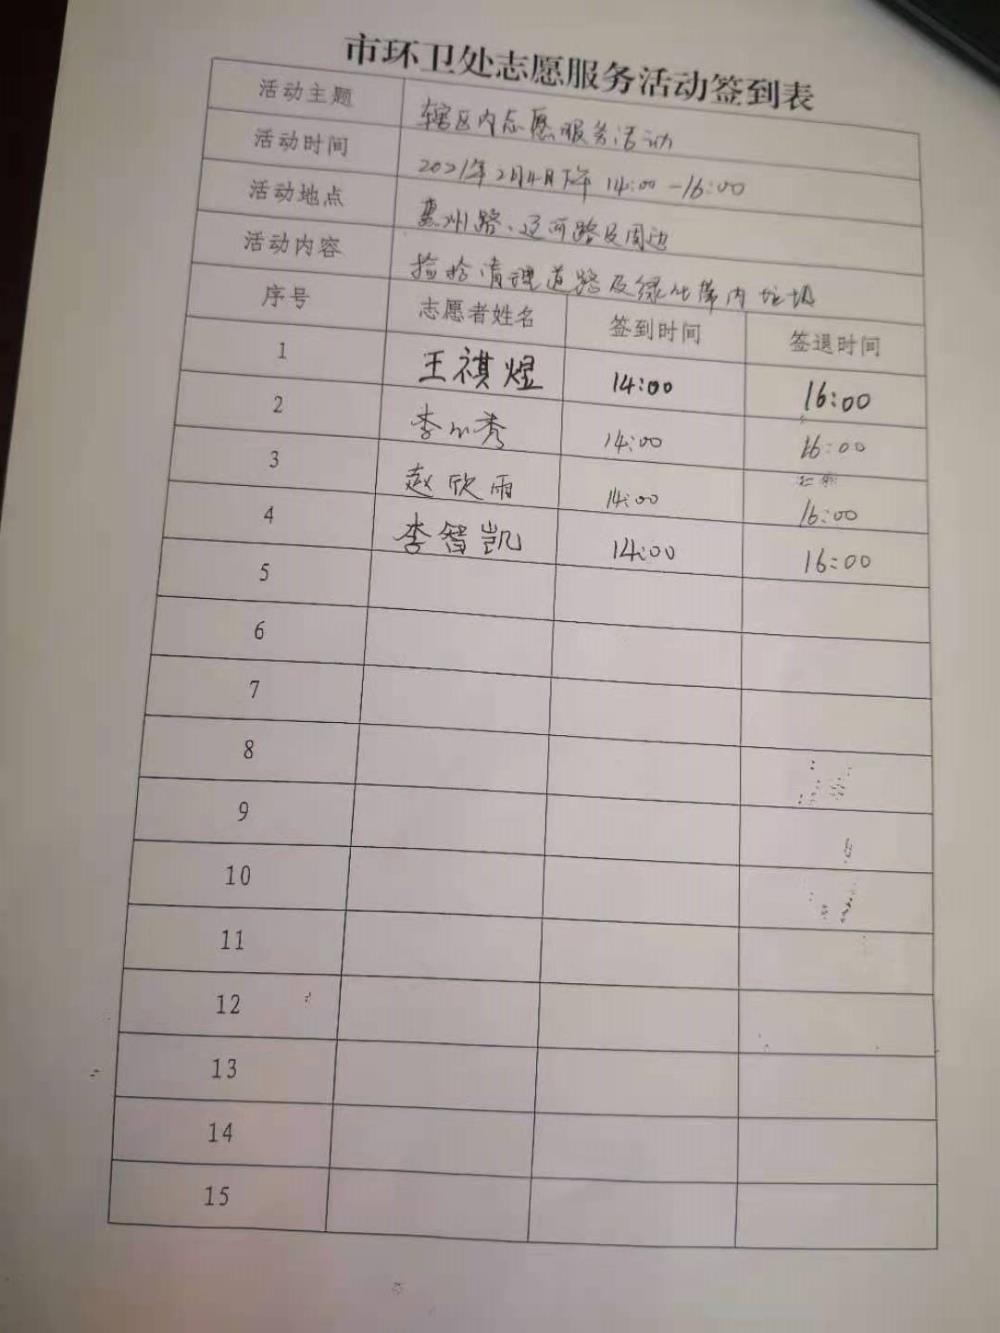 市环卫处志愿服务活动签到表
活动主题 辖区内志愿服务活动
活动时间 2021年2月4日下午 14:00-16:00
活动地点 惠州路、辽河路及周边
活动内容 捡拾清理道路及绿化带内垃圾
序号 志愿者姓名 签到时间 签退时间
1 王祺煜 14:00 16:00
2 李小秀 14:00 16:00
3 赵欣雨 14:00 16:00
4 李智凯 14:00 16:00
5
6
7
8
9
10
11
12
13
14
15